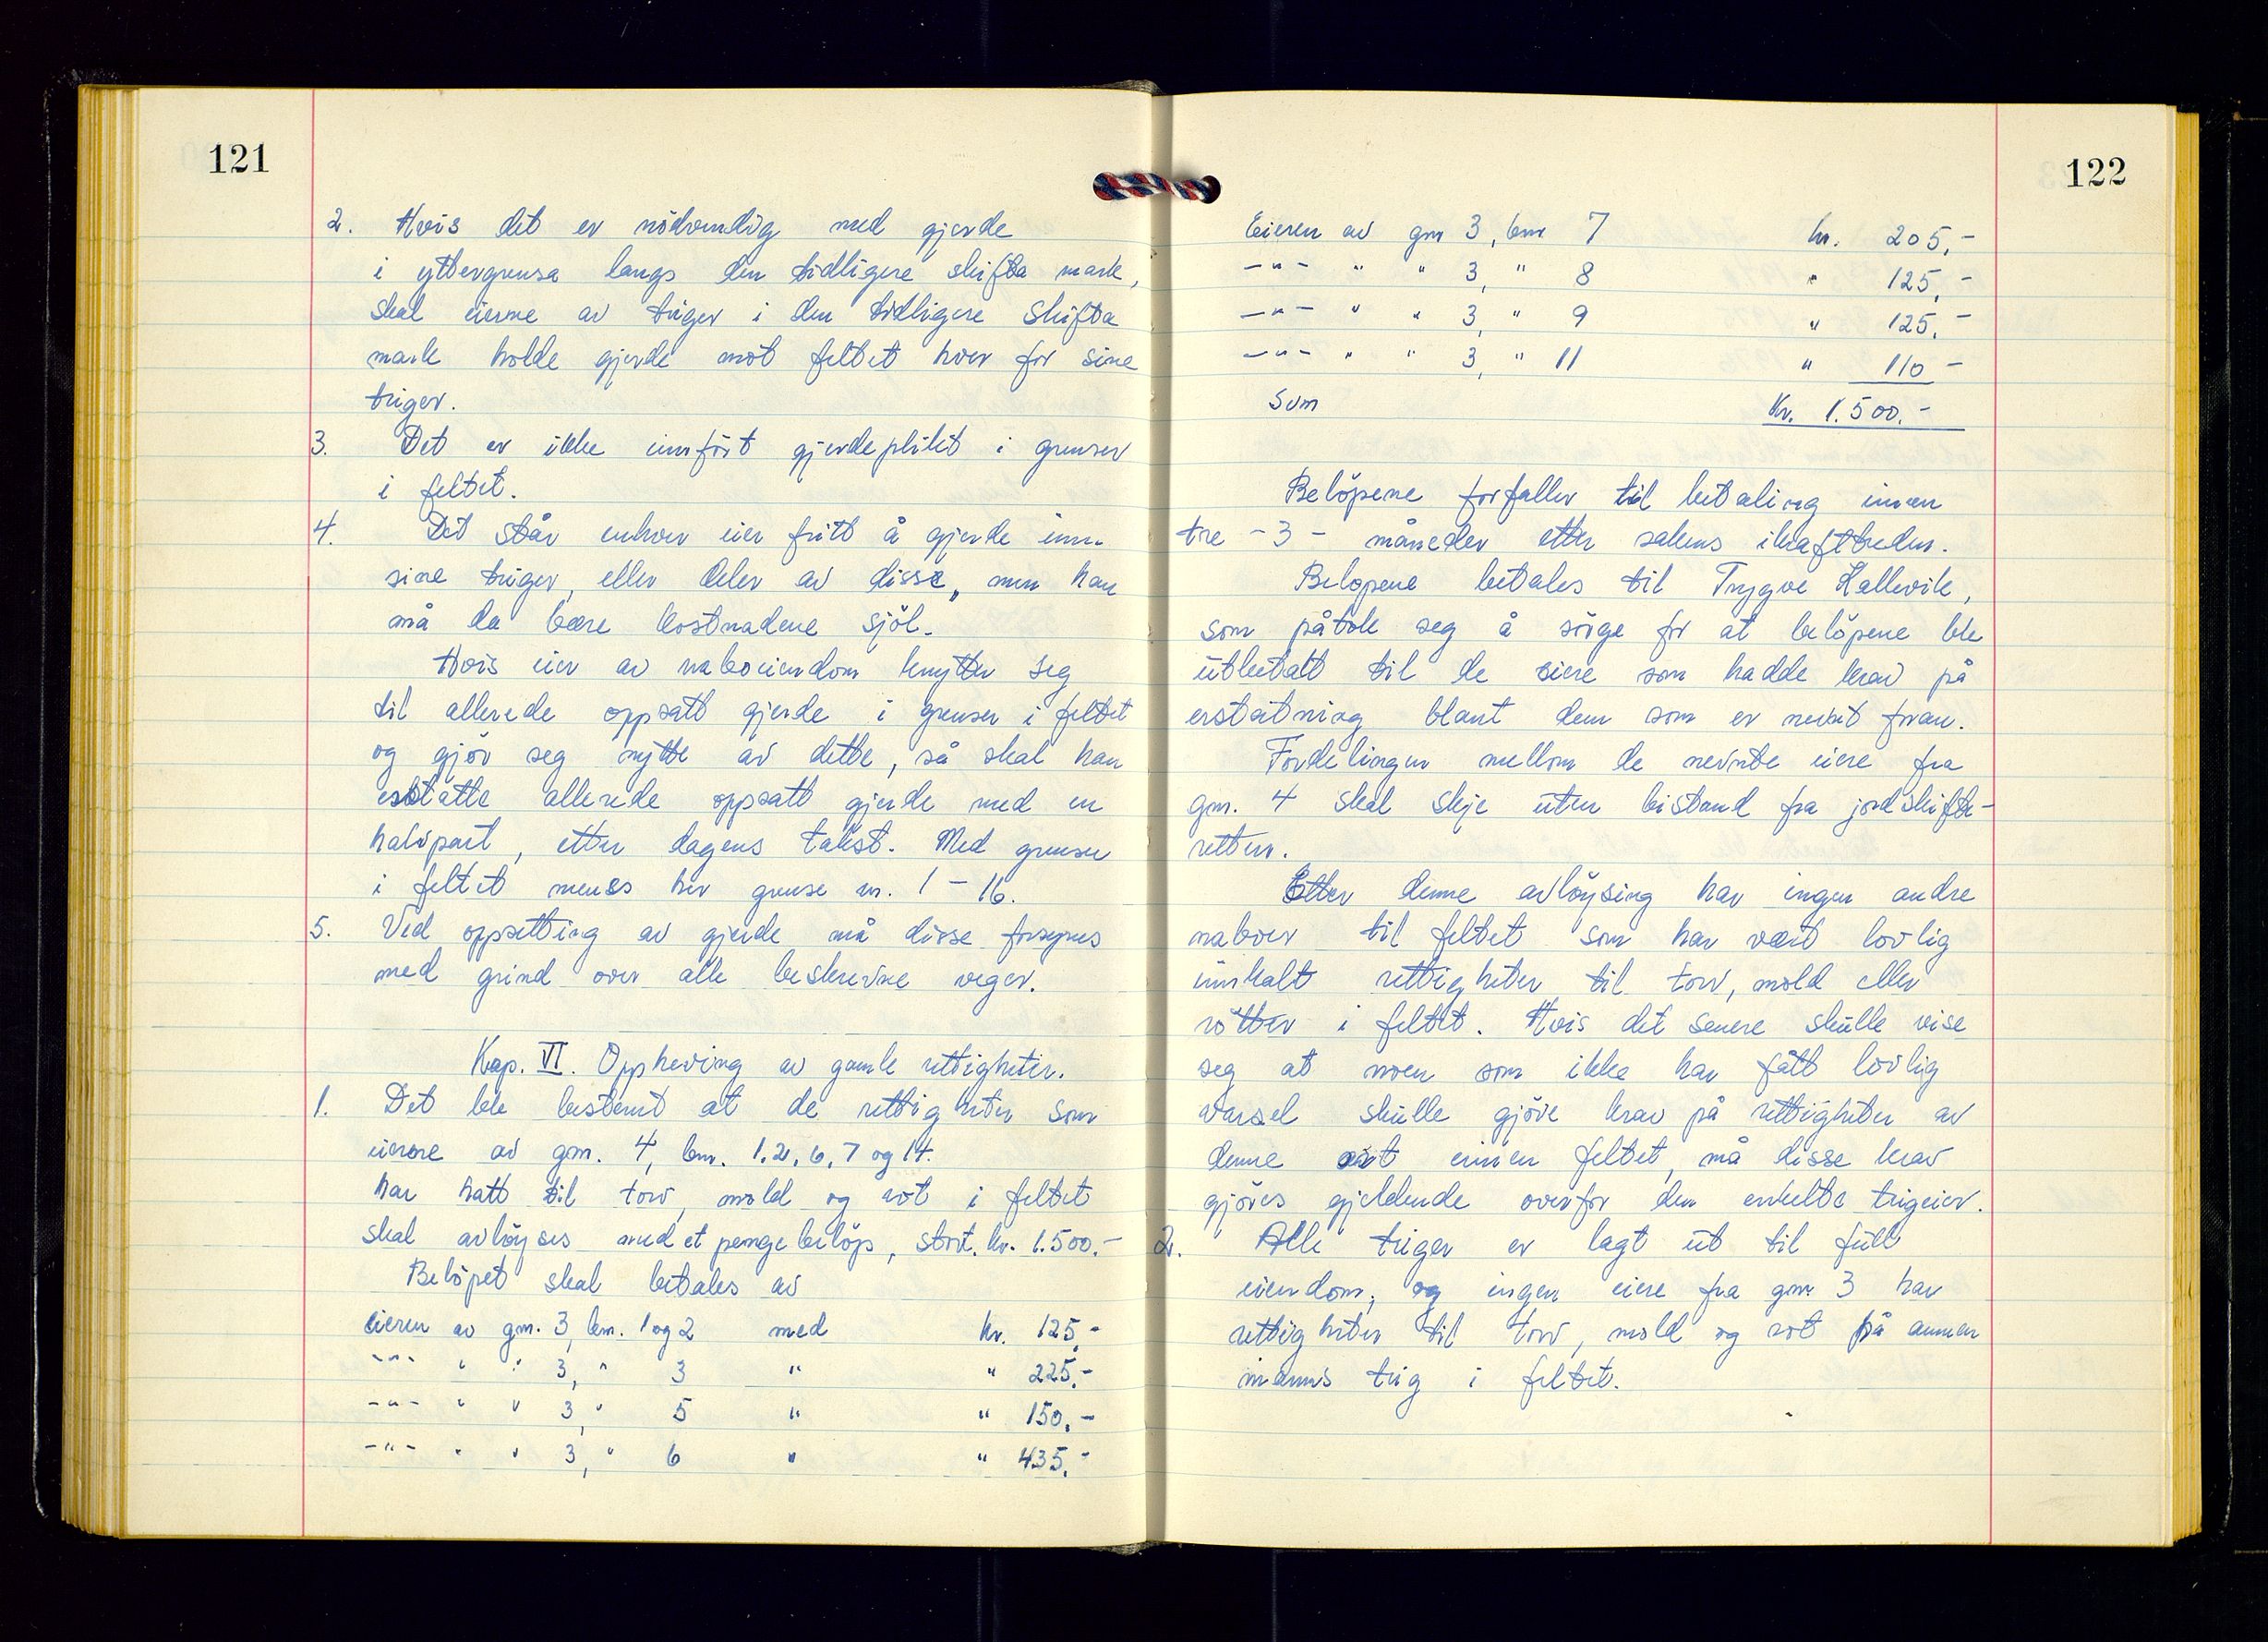 121
2. Hvis det er nödvendig med gjerde
i yttergrensa langs den tidligere skifta mark,
skal eierne av teiger i den tidligere skifta
mark holde gjerde mot feltet hver for sine
teiger.
3. Det er ikke innfört gjerdeplikt i grenser
i feltet.
4. Det står enhver eier fritt å gjerde inn
sine teiger, eller deler av disse, men han
må da bære kostnadene sjöl.
Hvis eier av naboeiendom knytter seg
til allerede oppsatt gjerde i grenser i feltet
og gjör seg nytte av dette, så skal han
erstatte allerede oppsatt gjerde med en
halvpart, etter dagens takst. Med grenser
i feltet menes her grense nr. 1 - 16.
5. Ved oppsetting av gjerde må disse forsynes
med grind over alle beskrevne veger.
Kap. VI. Oppheving av gamle rettigheter.
1. Det ble bestemt at de rettigheter som
eierne av gnr. 4, bnr. 1, 2, 6, 7 og 14.
har hatt til torv, mold og rot i feltet
skal avlöyses med et pengebelöp, stort. kr. 1.500.-
Belöpet skal betales av
eieren av gnr. 3, bnr. 1 og 2 med kr. 125,-
-"- " " 3, " 3 " " 225,-
-"- " " 3, " 5 " " 150,-
-"- " " 3, " 6 " " 435,-
122
Eieren av gnr 3, bnr 7 kr. 205,-
-"- " " 3, " 8 " 125,-
-"- " " 3, " 9 " 125,-
-"- " " 3, " 11 " 110 -
Sum Kr. 1.500.-
Belöpene forfaller til betaling innen
tre - 3 - måneder etter sakens ikrafttreden.
Belopene betales til Trygve Kallevik,
som påtok seg å sörge for at belöpene ble
utbetalt til de eiere som hadde krav på
erstatning blant dem som er nevnt foran.
Fordelingen mellom de nevnte eiere fra
gnr. 4 skal skje uten bistand fra jordskifte-
retten.
Etter denne avlöysing har ingen andre
naboer til feltet som har vært lovlig
innkalt rettigheter til torv, mold eller
rötter i feltet. Hvis det senere skulle vise
seg at noen som ikke har fått lovlig
varsel skulle gjöre krav på rettigheter av
denne art innen feltet, må disse krav
gjöres gjeldende overfor den enkelte teigeier.
2. Alle teiger er lagt ut til full
eiendom, og ingen eiere fra gnr 3 har
rettigheter til torv, mold og rot på annen
manns teig i feltet.